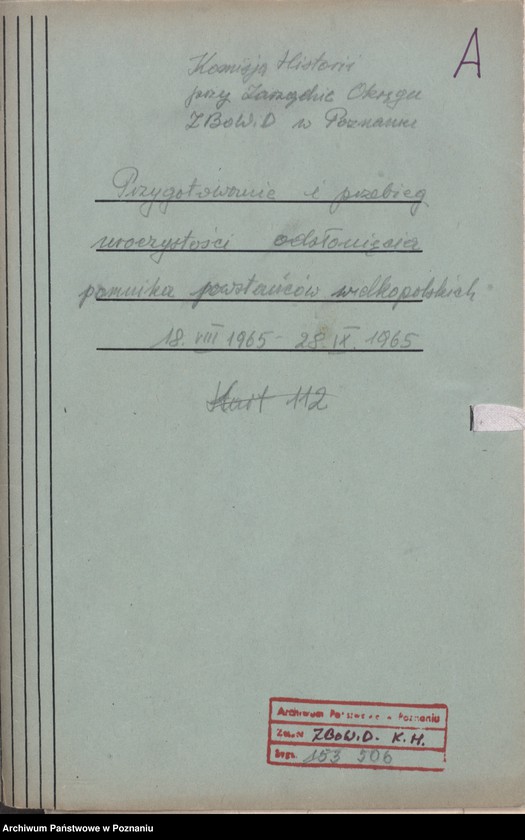 A
Komisja Historii
przy Zarządzie Okręgu
ZBoWiD w Poznaniu
Przygotowanie i przebieg
uroczystości odsłonięcia
pomnika powstańców wielkopolskich
18. VIII 1965 - 28. IX. 1965
Kart 112
Archiwum Państwowe w Poznaniu
Zespół ZBoWiD. K. H.
Sygn. 153 506
Archiwum Państwowe w Poznaniu